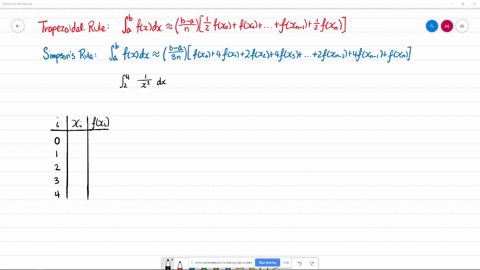 Microsoft Whiteboard
Trapezoidal Rule: ∫_a^b f(x)dx ≈ ((b-a)/n)[½f(x₀)+f(x₁)+...+f(xₙ₋₁)+½f(xₙ)]
Simpson's Rule: ∫_a^b f(x)dx ≈ ((b-a)/3n)[f(x₀)+4f(x₁)+2f(x₂)+4f(x₃)...+2f(xₙ₋₂)+4f(xₙ₋₁)+f(xₙ)]
∫_2^4 1/x³ dx
i xᵢ f(xᵢ)
0
1
2
3
4
Stop sharing